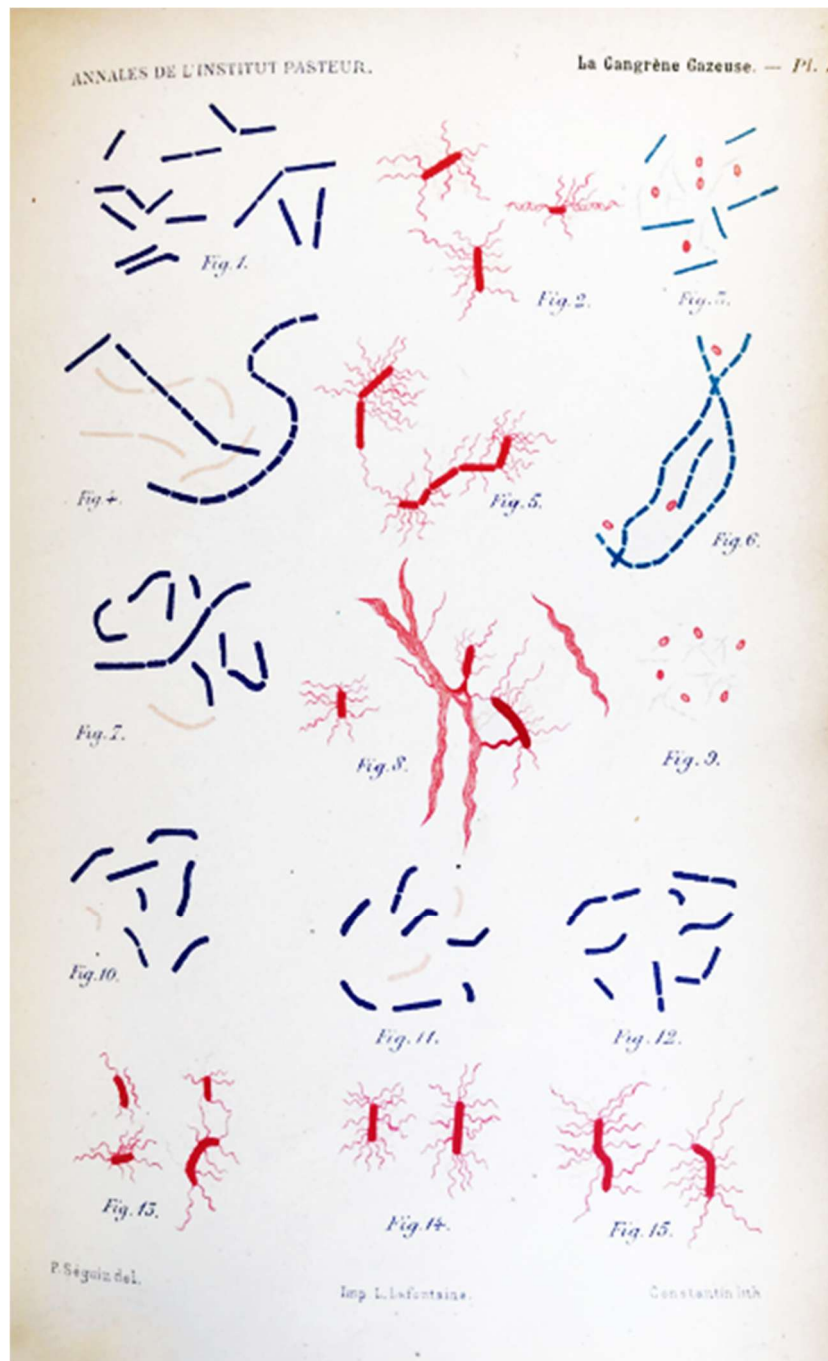 ANNALES DE L'INSTITUT PASTEUR.
La Gangrène Gazeuse. — Pl.
Fig. 1.
Fig. 2.
Fig. 3.
Fig. 4.
Fig. 5.
Fig. 6.
Fig. 7.
Fig. 8.
Fig. 9.
Fig. 10.
Fig. 11.
Fig. 12.
Fig. 13.
Fig. 14.
Fig. 15.
P. Séguin del.
Imp L. Lafontaine.
Constantin lith